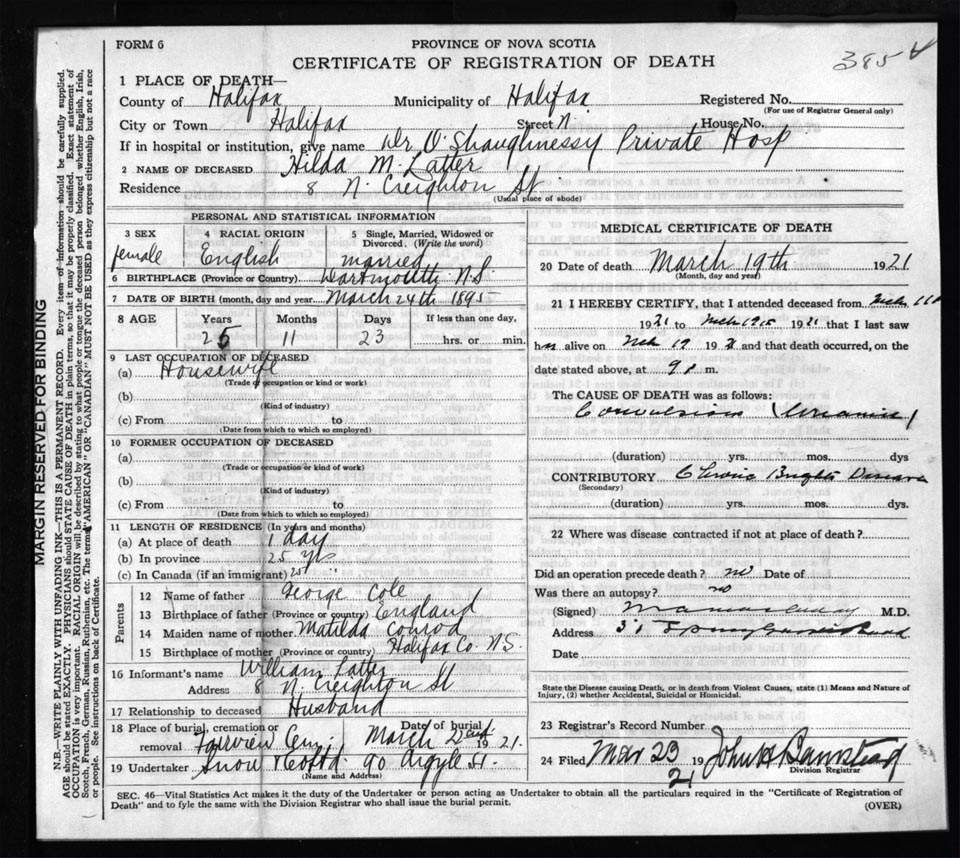 FORM 6
PROVINCE OF NOVA SCOTIA
CERTIFICATE OF REGISTRATION OF DEATH
385
1 PLACE OF DEATH—
County of Halifax Municipality of Halifax Registered No.
(For use of Registrar General only)
City or Town Halifax Street N. House No.
If in hospital or institution, give name Dr O'Shaughnessy Private Hosp
2 NAME OF DECEASED Hilda M. Latter
Residence 8 N. Creighton St
(Usual place of abode)
PERSONAL AND STATISTICAL INFORMATION
3 SEX female
4 RACIAL ORIGIN English
5 Single, Married, Widowed or Divorced. (Write the word) married
6 BIRTHPLACE (Province or Country) Dartmouth N.S.
7 DATE OF BIRTH (month, day and year) March 24th 1895
8 AGE Years Months Days If less than one day,
25 11 23 hrs. or min.
9 LAST OCCUPATION OF DECEASED
(a) Housewife
(Trade or occupation or kind or work)
(b)
(Kind of industry)
(c) From to
(Date from which to which so employed)
10 FORMER OCCUPATION OF DECEASED
(a)
(Trade or occupation or kind of work)
(b)
(Kind of industry)
(c) From to
(Date from which to which so employed)
11 LENGTH OF RESIDENCE (In years and months)
(a) At place of death 1 day
(b) In province 25 yrs
(c) In Canada (if an immigrant) 25 "
Parents
12 Name of father George Cole
13 Birthplace of father (Province or country) England
14 Maiden name of mother Matilda Conrod
15 Birthplace of mother (Province or country) Halifax Co. N.S.
16 Informant's name William Latter
Address 8 N. Creighton St
17 Relationship to deceased Husband
18 Place of burial, cremation or removal Fairview Cem. Date of burial March 22nd 1921.
19 Undertaker Snow & Co 90 Argyle St.
(Name and Address)
MEDICAL CERTIFICATE OF DEATH
20 Date of death March 19th 1921
(Month, day and year)
21 I HEREBY CERTIFY, that I attended deceased from
1921 to 1921 that I last saw
h alive on 19 and that death occurred, on the
date stated above, at 9 m.
The CAUSE OF DEATH was as follows:
Convulsions (Uraemic)
(duration) yrs. mos. dys
CONTRIBUTORY Chronic Brights Disease
(Secondary)
(duration) yrs. mos. dys.
22 Where was disease contracted if not at place of death?
Did an operation precede death? no Date of
Was there an autopsy? no
(Signed) M.D.
Address
Date
State the Disease causing Death, or in death from Violent Causes, state (1) Means and Nature of
Injury, (2) whether Accidental, Suicidal or Homicidal.
23 Registrar's Record Number
24 Filed Mar 23 1921 John H Barnstead
Division Registrar
SEC. 46—Vital Statistics Act makes it the duty of the Undertaker or person acting as Undertaker to obtain all the particulars required in the "Certificate of Registration of
Death" and to fyle the same with the Division Registrar who shall issue the burial permit.
(OVER)
MARGIN RESERVED FOR BINDING
N.B.—WRITE PLAINLY WITH UNFADING INK—THIS IS A PERMANENT RECORD. Every item of information should be carefully supplied.
AGE should be stated EXACTLY. PHYSICIANS should STATE CAUSE OF DEATH in plain terms, so that it may be properly classified. Exact statement of
OCCUPATION is very important. RACIAL ORIGIN will be described by stating to what people or tongue the deceased person belonged whether English, Irish,
Scotch, French, German, Russian, Ruthenian, etc. The terms "AMERICAN" OR "CANADIAN" MUST NOT BE USED as they express citizenship but not a race
or people. See instructions on back of Certificate.